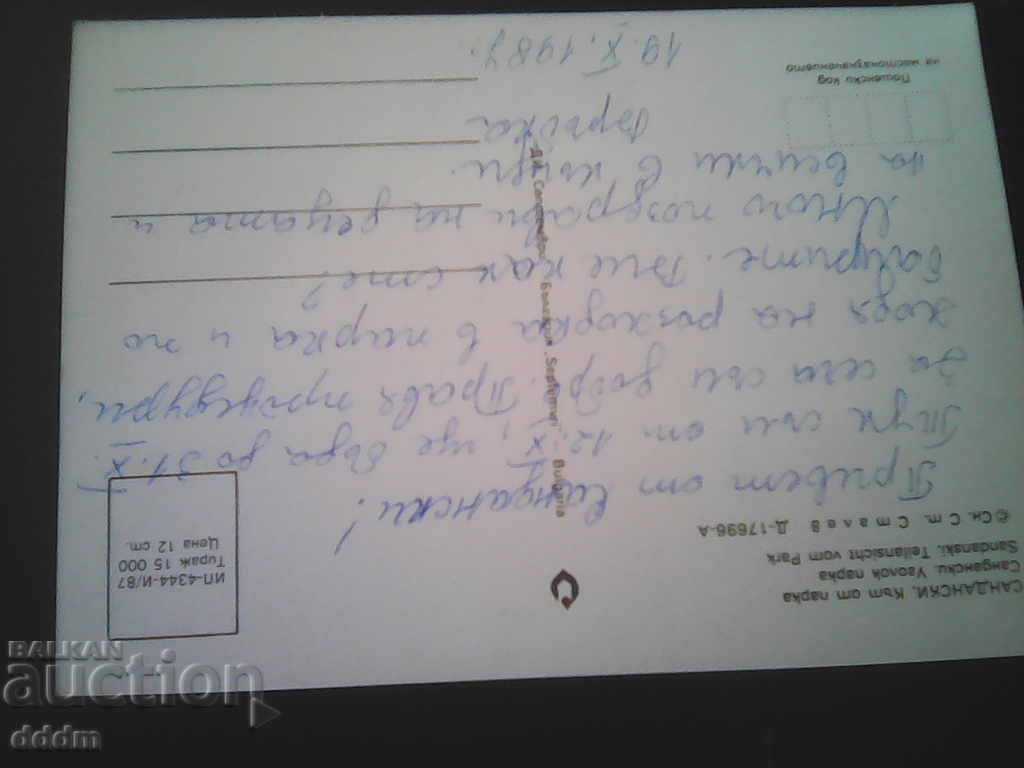 САНДАНСКИ. Кът от парка
Сандански. Уголок парка
Sandanski. Teilansicht vom Park
© Сн. Ст. Сталев Д-17696-А
ИП-4344-И/87
Тираж 15 000
Цена 12 ст.
Привет от Сандански!
Тук съм от 12. X, ще бъда до 31. X.
За сега съм добре. Правя процедури,
ходя на разходка в парка и по
баирите. Вие как сте?
Много поздрави на децата и
на всички в къщи.
19. X. 1987.
Пощенски код
на местоназначението
ДП Септември България „Septemvri" Bulgaria
BALKAN
auction
dddm